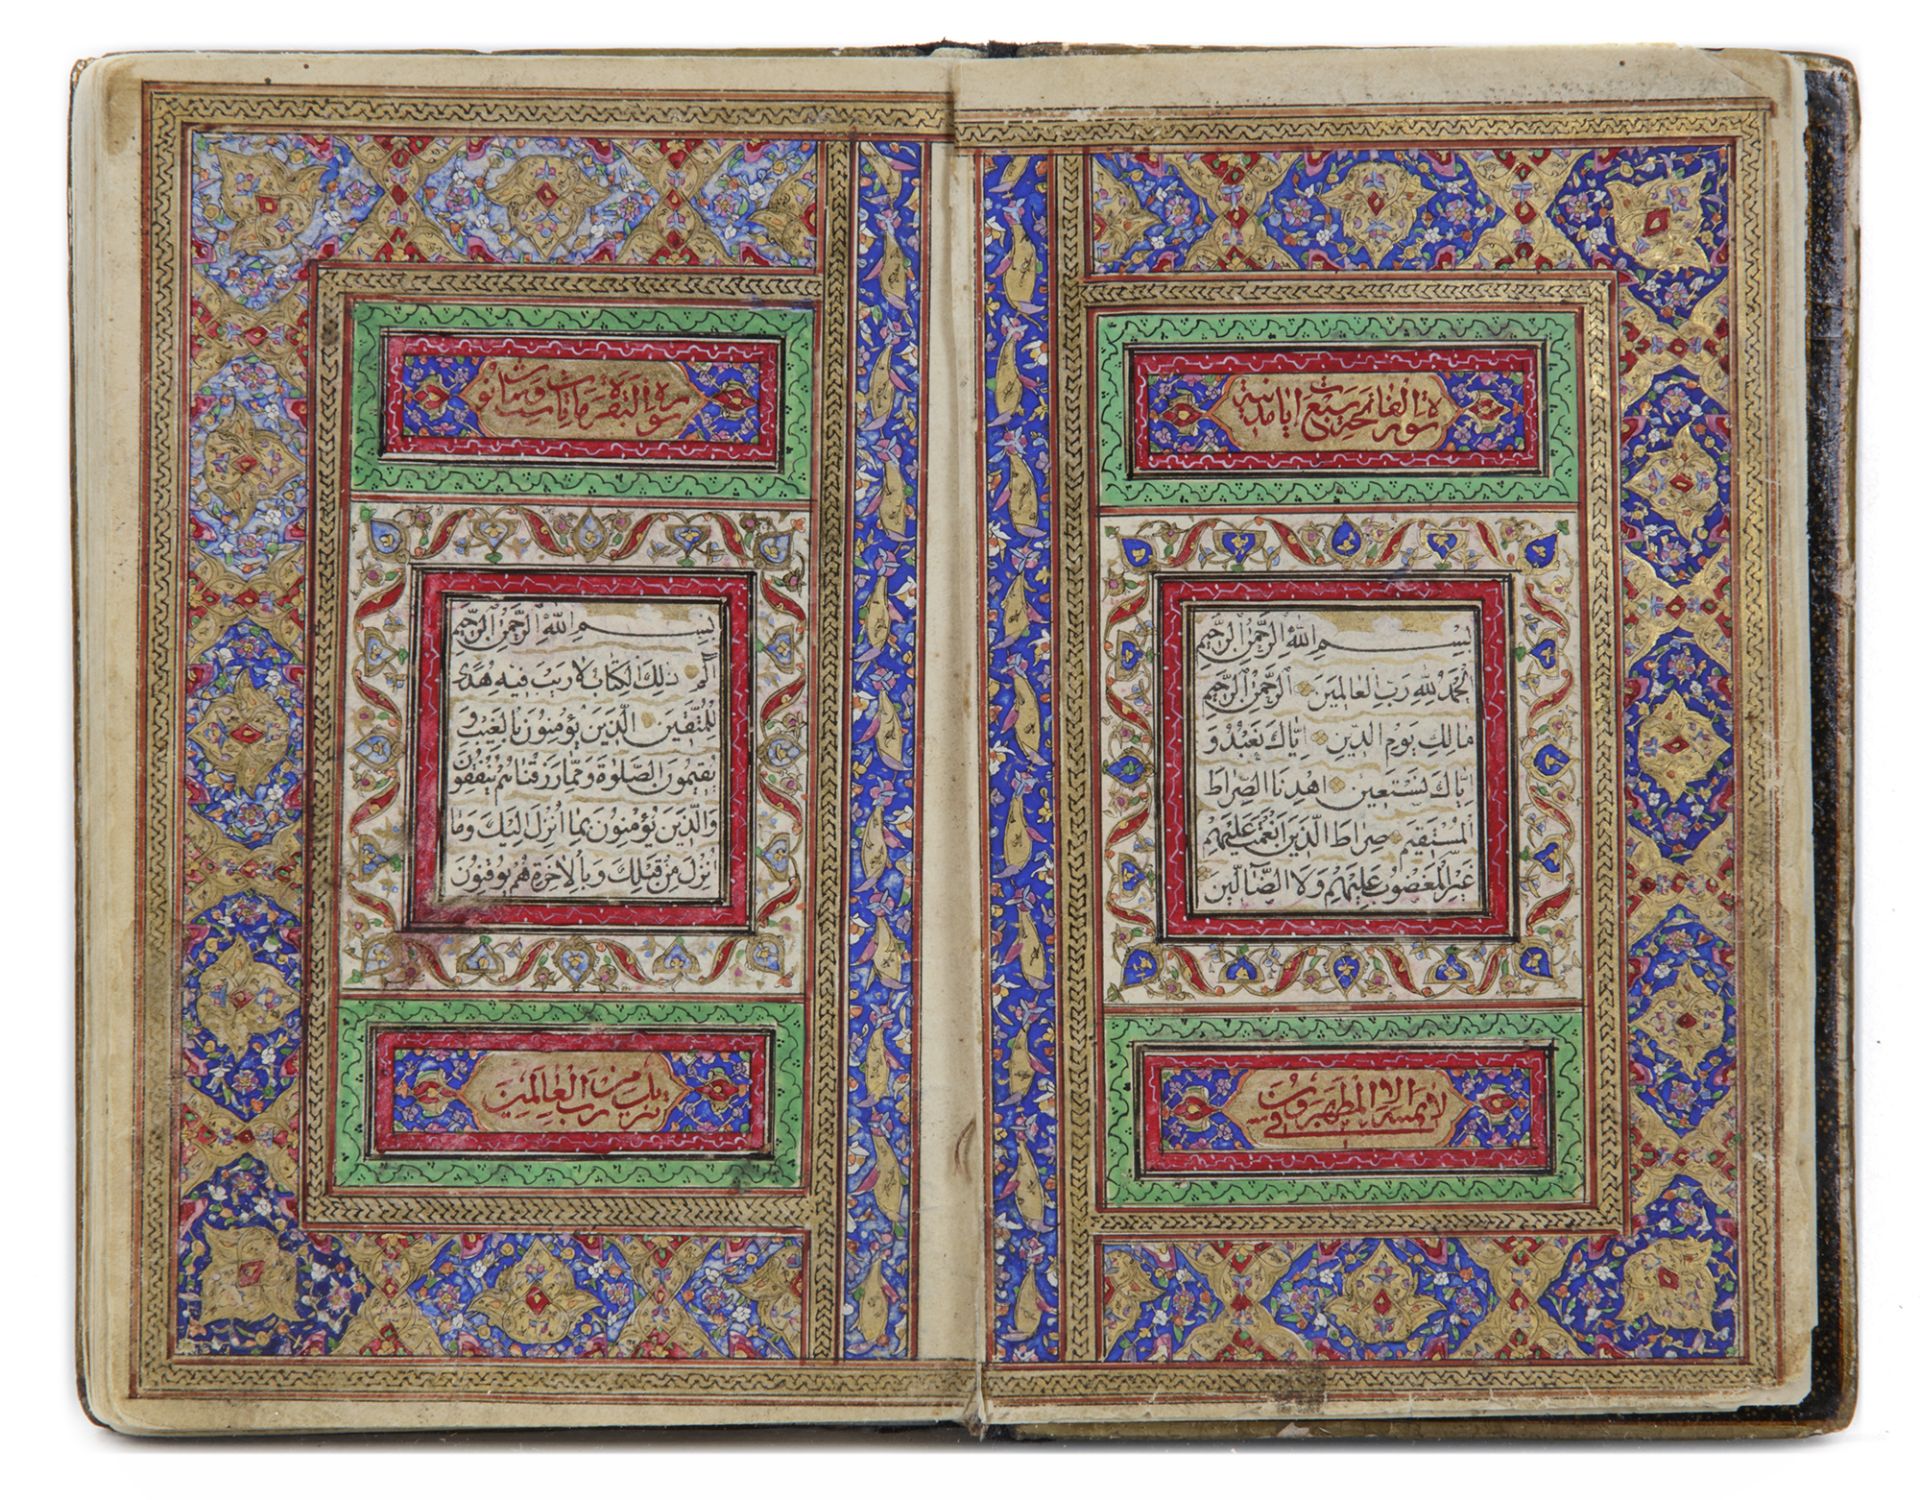 سورة الفاتحة سبع ايات مدنية
بِسْمِ اللهِ الرَّحْمٰنِ الرَّحِيمِ
اَلْحَمْدُ لِلّٰهِ رَبِّ الْعَالَمِينَ الرَّحْمٰنِ الرَّحِيمِ
مَالِكِ يَوْمِ الدِّينِ اِيَّاكَ نَعْبُدُ وَ
اِيَّاكَ نَسْتَعِينُ اِهْدِنَا الصِّرَاطَ
الْمُسْتَقِيمَ صِرَاطَ الَّذِينَ اَنْعَمْتَ عَلَيْهِمْ
غَيْرِ الْمَغْضُوبِ عَلَيْهِمْ وَلَا الضَّالِّينَ
لا يمسه الا المطهرون
سورة البقرة مأتان وست وثمانو
بِسْمِ اللهِ الرَّحْمٰنِ الرَّحِيمِ
الم ذٰلِكَ الْكِتَابُ لَا رَيْبَ فِيهِ هُدًى
لِلْمُتَّقِينَ الَّذِينَ يُؤْمِنُونَ بِالْغَيْبِ وَ
يُقِيمُونَ الصَّلٰوةَ وَمِمَّا رَزَقْنَاهُمْ يُنْفِقُونَ
وَالَّذِينَ يُؤْمِنُونَ بِمَا اُنْزِلَ اِلَيْكَ وَمَا
اُنْزِلَ مِنْ قَبْلِكَ وَبِالْاٰخِرَةِ هُمْ يُوقِنُونَ
تنزيل من رب العالمين